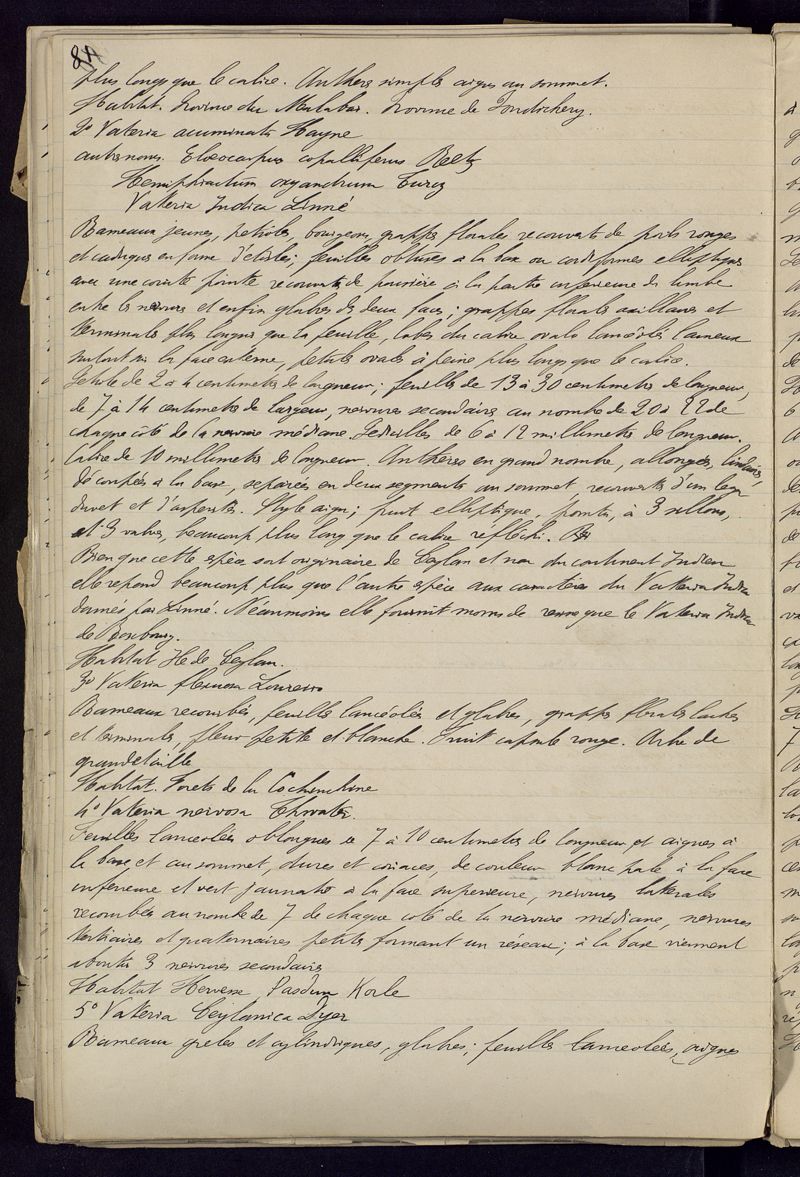 84
plus longs que le calice. Anthers simples aigus au sommet.
Habitat. Province du Malabar. Province de Pondichery.
2° Vateria acuminata Hayne
autres noms. Elœocarpus copalliferus Retz
Hemiphractum oxyandrum Turcz
Vateria Indica Linné
Rameaux jeunes, petioles, bourgeons, grappes florales recouverts de poils rouges
et caduques en forme d'étoiles; feuilles obtuses à la base ou cordiformes elliptiques
avec une courte pointe recouverts de poussière à la partie inferieure du limbe
entre les nervures et enfin glabres des deux faces; grappes florales axillaires et
terminales plus longues que la feuille, lobes du calice ovales lancéolés laineux
surtout sur la face externe, petales ovales à peine plus longs que le calice.
Petiole de 2 à 4 centimetres de longueur; feuilles de 13 à 30 centimetres de longueur,
de 7 à 14 centimetres de largeur, nervures secondaires au nombre de 20 à 22 de
chaque côté de la nervure médiane. Pedicelles de 6 à 12 millimetres de longueur.
Calice de 10 millimetres de longueur. Anthères en grand nombre, allongées, linéaires,
découpées à la base, separées en deux segments au sommet, recouverts d'un leger
duvet et d'asperités. Style aigu; fruit elliptique, pointu, à 3 sillons,
et 3 valves, beaucoup plus long que le calice reflechi.
Bien que cette espèce soit originaire de Ceylan et non du continent Indien
elle repond beaucoup plus que l'autre espèce aux caractères du Vateria Indica
donnés par Linné. Néanmoins elle fournit moins de resine que le Vateria Indica
de Roxbourg.
Habitat Ile de Ceylan.
3° Vateria flexuosa Loureiro
Rameaux recourbés, feuilles lancéolées et glabres, grappes florales laches
et terminales, fleur petite et blanche. Fruit capsule rouge. Arbre de
grande taille
Habitat. Forets de la Cochinchine
4° Vateria nervosa Thwaites.
Feuilles lanceolées oblongues de 7 à 10 centimetres de longueur et aigues à
la base et au sommet, dures et coriaces, de couleur blanc pale à la face
inferieure et vert jaunatre à la face superieure, nervures laterales
recourbées au nombre de 7 de chaque coté de la nervure médiane, nervures
tertiaires et quaternaires petites formant un réseau; à la base viennent
aboutir 3 nervures secondaires
Habitat Hewesse Pasdun Korle
5° Vateria Ceylanica Dyer
Rameaux greles et cylindriques, glabres; feuilles lanceolées, aigues